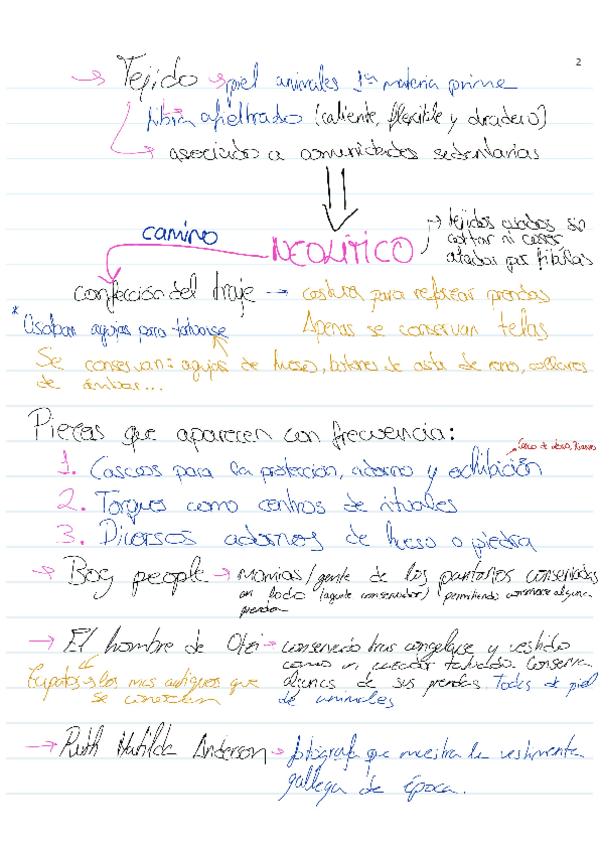 2
→ Tejido → piel animales 1ª materia prima
fibra afieltrado (caliente, flexible y duradero)
→ asociado a comunidades sedentarias
camino
NEOLITICO
→ tejidos cuadros sin
cortar ni coser
atados por fíbulas
confección del traje → costura para reforzar prendas
* Usaban agujas para tatuarse
Apenas se conservan telas
Se conservan: agujas de hueso, botones de asta de reno, collares
de ámbar...
Piezas que aparecen con frecuencia:
1. Cascos para la protección, adorno y exhibición
2. Torques como centros de rituales
3. Diversos adornos de hueso o piedra
→ Bog people → momias/gente de los pantanos conservadas
en lodo (agente conservador) permitiendo conservar alguna
prenda
→ El hombre de Otzi → conservado tras congelarse y vestido
como un cazador tatuado. Conserva
Zapatos → los mas antiguos que
se conservan
algunas de sus prendas. Todas de piel
de animales
→ Ruth Matilda Anderson → fotógrafa que muestra la vestimenta
gallega de época.